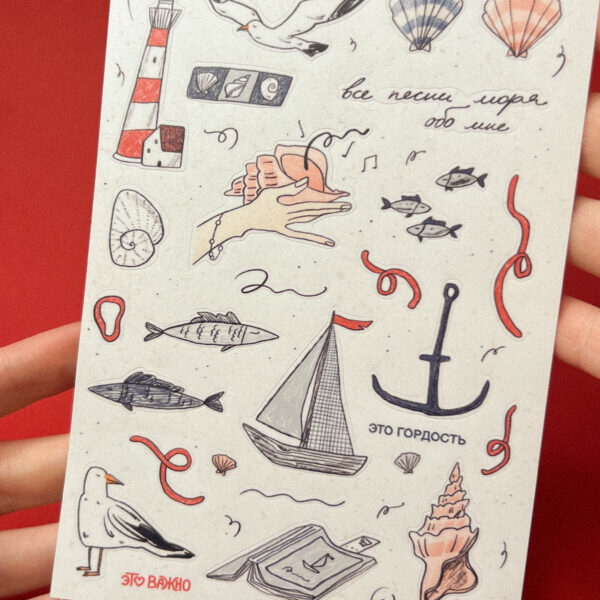 все песни моря
обо мне
ЭТО ГОРДОСТЬ
ЭТО ВАЖНО